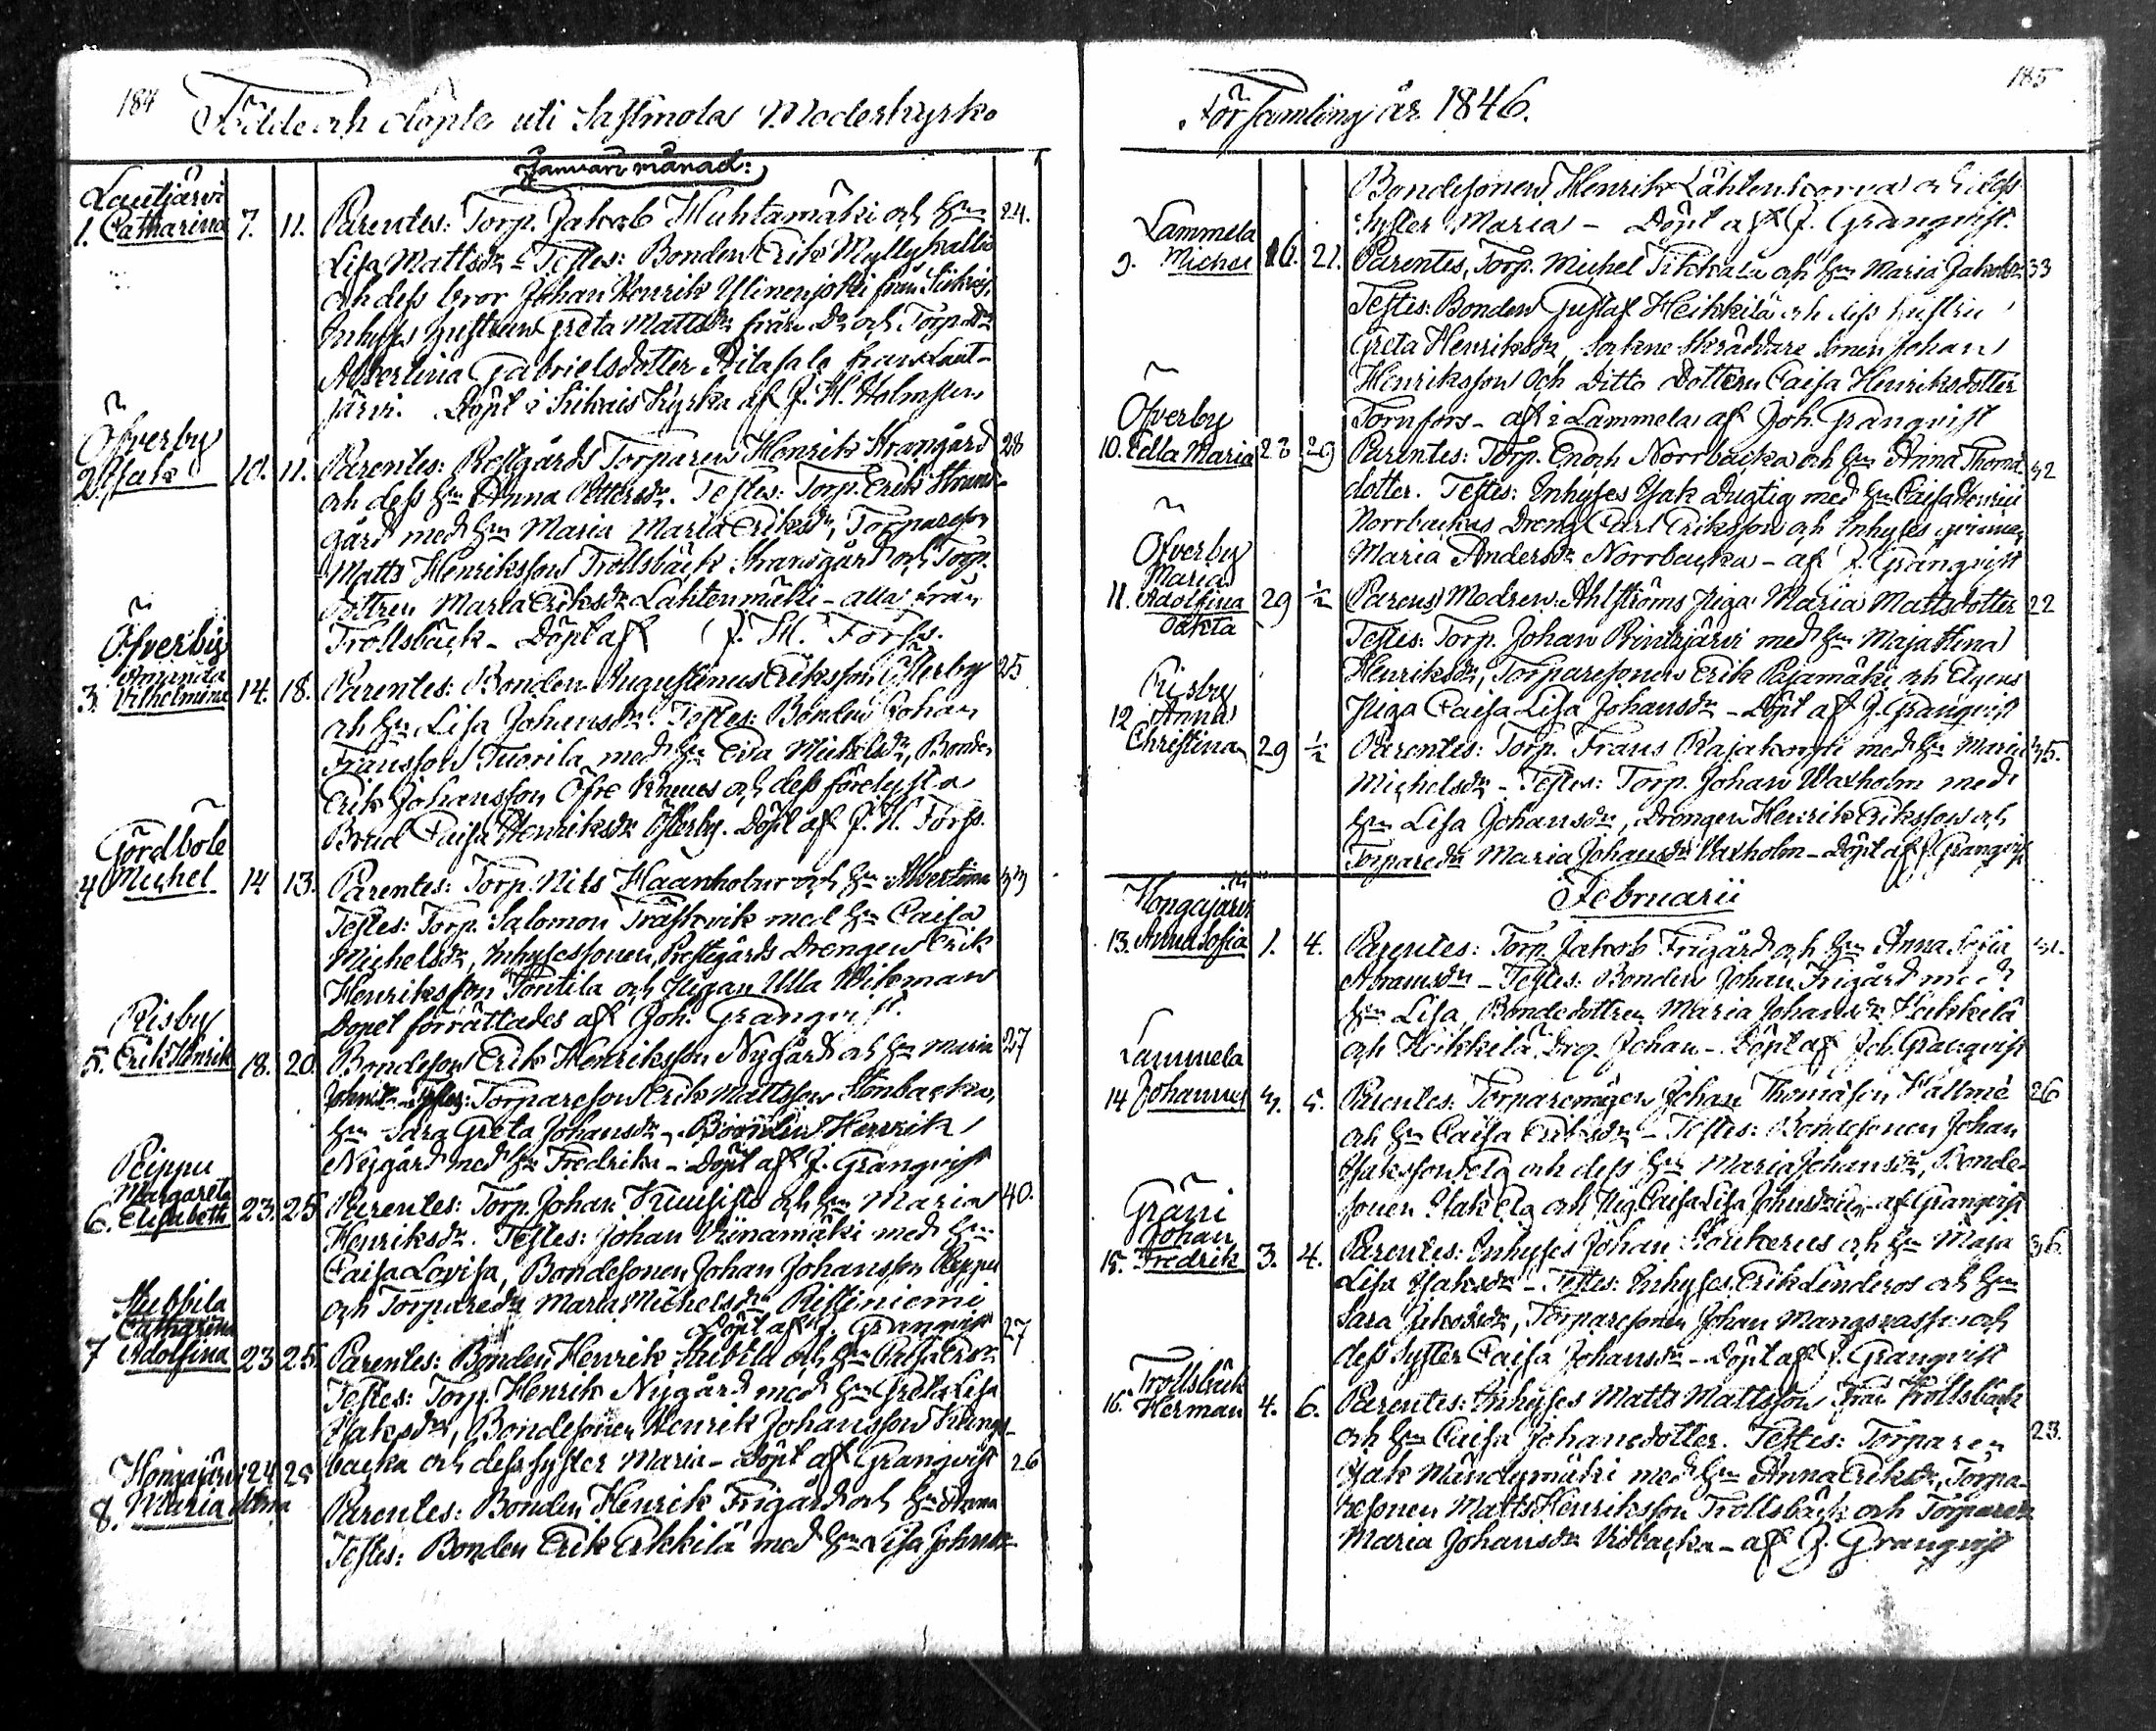 184
Födde och döpte uti Sastmola Moderkyrko
Januari månad:
Lautjärvi
1. Catharina 7. 11. Parentes: Torp. Jakob Huhtamäki och Hu 24.
Lisa Mattsdr - Testes: Bonden Erik Myllykallio
och dess bror Johan Henrik Ylinenjoki från Siikais,
Inhyses hustrun Greta Mattsdr från Do och Torp.dr
Albertina Gabrielsdotter från Laut-
järvi. Döpt i Siikais Kyrka af J. H. Holmsten
Öfverby
2. Isak 10. 11. Parentes: Prestgårds Torparen Henrik Strangård 28
och dess Hu Anna Pettersdr. Testes: Torp. Erik Strand-
gård med Hu Maria Maria Eriksdr, Torpareson
Matts Henriksson Trollsbäck Strangård och Torp.
dottren Maria Eriksdr Lähtenmäki - alla från
Trollsbäck - Döpt af J. H. Forss.
Öfverby
Aminda
3. Vilhelmina 14. 18. Parentes: Bonden Augustinus Eriksson Österby 25
och Hu Lisa Johansdr. Testes: Bonden Johan
Fransson Tuorila med Hu Eva Michelsdr, Bonden
Erik Johansson Öfre Knuus och dess förelysta
Brud Caisa Henriksdr Österby. Döpt af J. H. Forss.
Gördböle
4 Michel 14 13. Parentes: Torp. Nils Haanholm och Hu Albertina 33
Testes: Torp. Salomon Träskvik med Hu Caisa
Michelsdr, Inhysessonen, Prestgårds Drengen Erik
Henriksson Töntila och Pigan Ulla Wikman
Dopet förrättades af Joh. Granqvist.
Risby
5. Erik Henrik 18. 20. Bondeson Erik Henriksson Nygård och Hu Maria 27
Johansdr Testes: Torpareson Erik Mattsson Stenbacka,
Hu Sara Greta Johansdr, Bonden Henrik
Nygård med Hu Fredrika - Döpt af J. Granqvist
Peippu
Margareta
6. Elisabeth 23. 25 Parentes: Torp. Johan Kuusisto och Hu Maria 40.
Henriksdr. Testes: Johan Viinamäki med Hu
Caisa Lovisa, Bondesonen Johan Johansson Peippu
och Torparedr Maria Michelsdr Ristiniemi
Döpt af J. Granqvist
Stubbila
Catharina
7 Adolfina 23 25. Parentes: Bonden Henrik Stubbila och Hu Caisa Ersdr 27
Testes: Torp. Henrik Nygård med Hu Greta Lisa
Isaksdr, Bondesonen Henrik Johansson Klungs-
backa och dess syster Maria - Döpt af Granqvist
Hongajärvi 24 25 26
8. Maria Stina Parentes: Bonden Henrik Frigård och Hu Anna
Testes: Bonden Erik Erkkilä med Hu Lisa Johansdr
185
Församling år 1846.
Bondesonen Henrik Lähtenkorva och dess
syster Maria - Döpt af J. Granqvist.
Lammela
9. Michel 16. 21. Parentes, Torp. Michel Tikkala och Hu Maria Jakobsdr 33
Testes: Bonden Gustaf Heikkilä och dess hustru
Greta Henriksdr, Sockne Skräddare Sonen Johan
Henriksson och Ditto Dottern Caisa Henriksdotter
Tornfors - af i Lammela af Joh. Granqvist
Öfverby
10. Edla Maria 23 29 Parentes: Torp. Enoch Norrbacka och Hu Anna Thoma- 32
dotter. Testes: Inhyses Isak Dugtig med Hu Caisa Henrici
Norrbackas Dreng Carl Eriksson och Inhyses qvinnan
Maria Andersdr Norrbacka - af J. Granqvist
Öfverby
Maria
11. Adolfina 29 ½ Parens Modren Ahlströms Piga Maria Mattsdotter 22
Oäkta
Testes: Torp. Johan Rintajärvi med Hu Maja Stina
Henriksdr, Torparesonen Erik Pajamäki och Elgens
Piga Caisa Lisa Johansdr - Döpt af J. Granqvist
Risby
12 Anna
Christina 29 ½ Parentes: Torp. Frans Rajakorpi med Hu Maria 35.
Michelsdr - Testes: Torp. Johan Waxholm med
Hu Lisa Johansdr, Drengen Henrik Eriksson och
Torparedr Maria Johansdr Vaxholm - Döpt af J. Granqvist
Februarii
Hongajärvi
13. Anna Sofia 1. 4. Parentes: Torp. Jakob Frigård och Hu Anna Sofia 31.
Abramsdr - Testes: Bonden Johan Frigård med
Hu Lisa, Bondedottren Maria Johansdr Heikkilä
och Heikkilä Dreng Johan - Döpt af Joh. Granqvist
Lammela
14 Johannes 3. 5. Parentes: Torparemågen Johan Thomasson Hallmé 26
och Hu Caisa Eriksdr - Testes: Bondesonen Johan
Isaksson och dess Hu Maria Johansdr, Bonde-
sonen Isak och Pig Caisa Lisa Johansdr af Granqvist
Gräni
Johan
15. Fredrik 3. 4. Parentes: Inhyses Johan och Hu Maja 36
Lisa Isaksdr - Testes: Inhyses Erik Linderos och Hu
Sara Jakobsdr, Torparesonen Johan Mangsnasse och
dess syster Caisa Johansdr - Döpt af J. Granqvist
Trollsbäck
16. Herman 4. 6. Parentes: Inhyses Matts Mattsson från Trollsbäck
och Hu Caisa Johansdotter. Testes: Torparen 23.
Isak Mändymäki med Hu Anna Eriksdr, Torpa-
resonen Matts Henriksson Trollsbäck och Torparedr
Maria Johansdr Vidbacka - af J. Granqvist